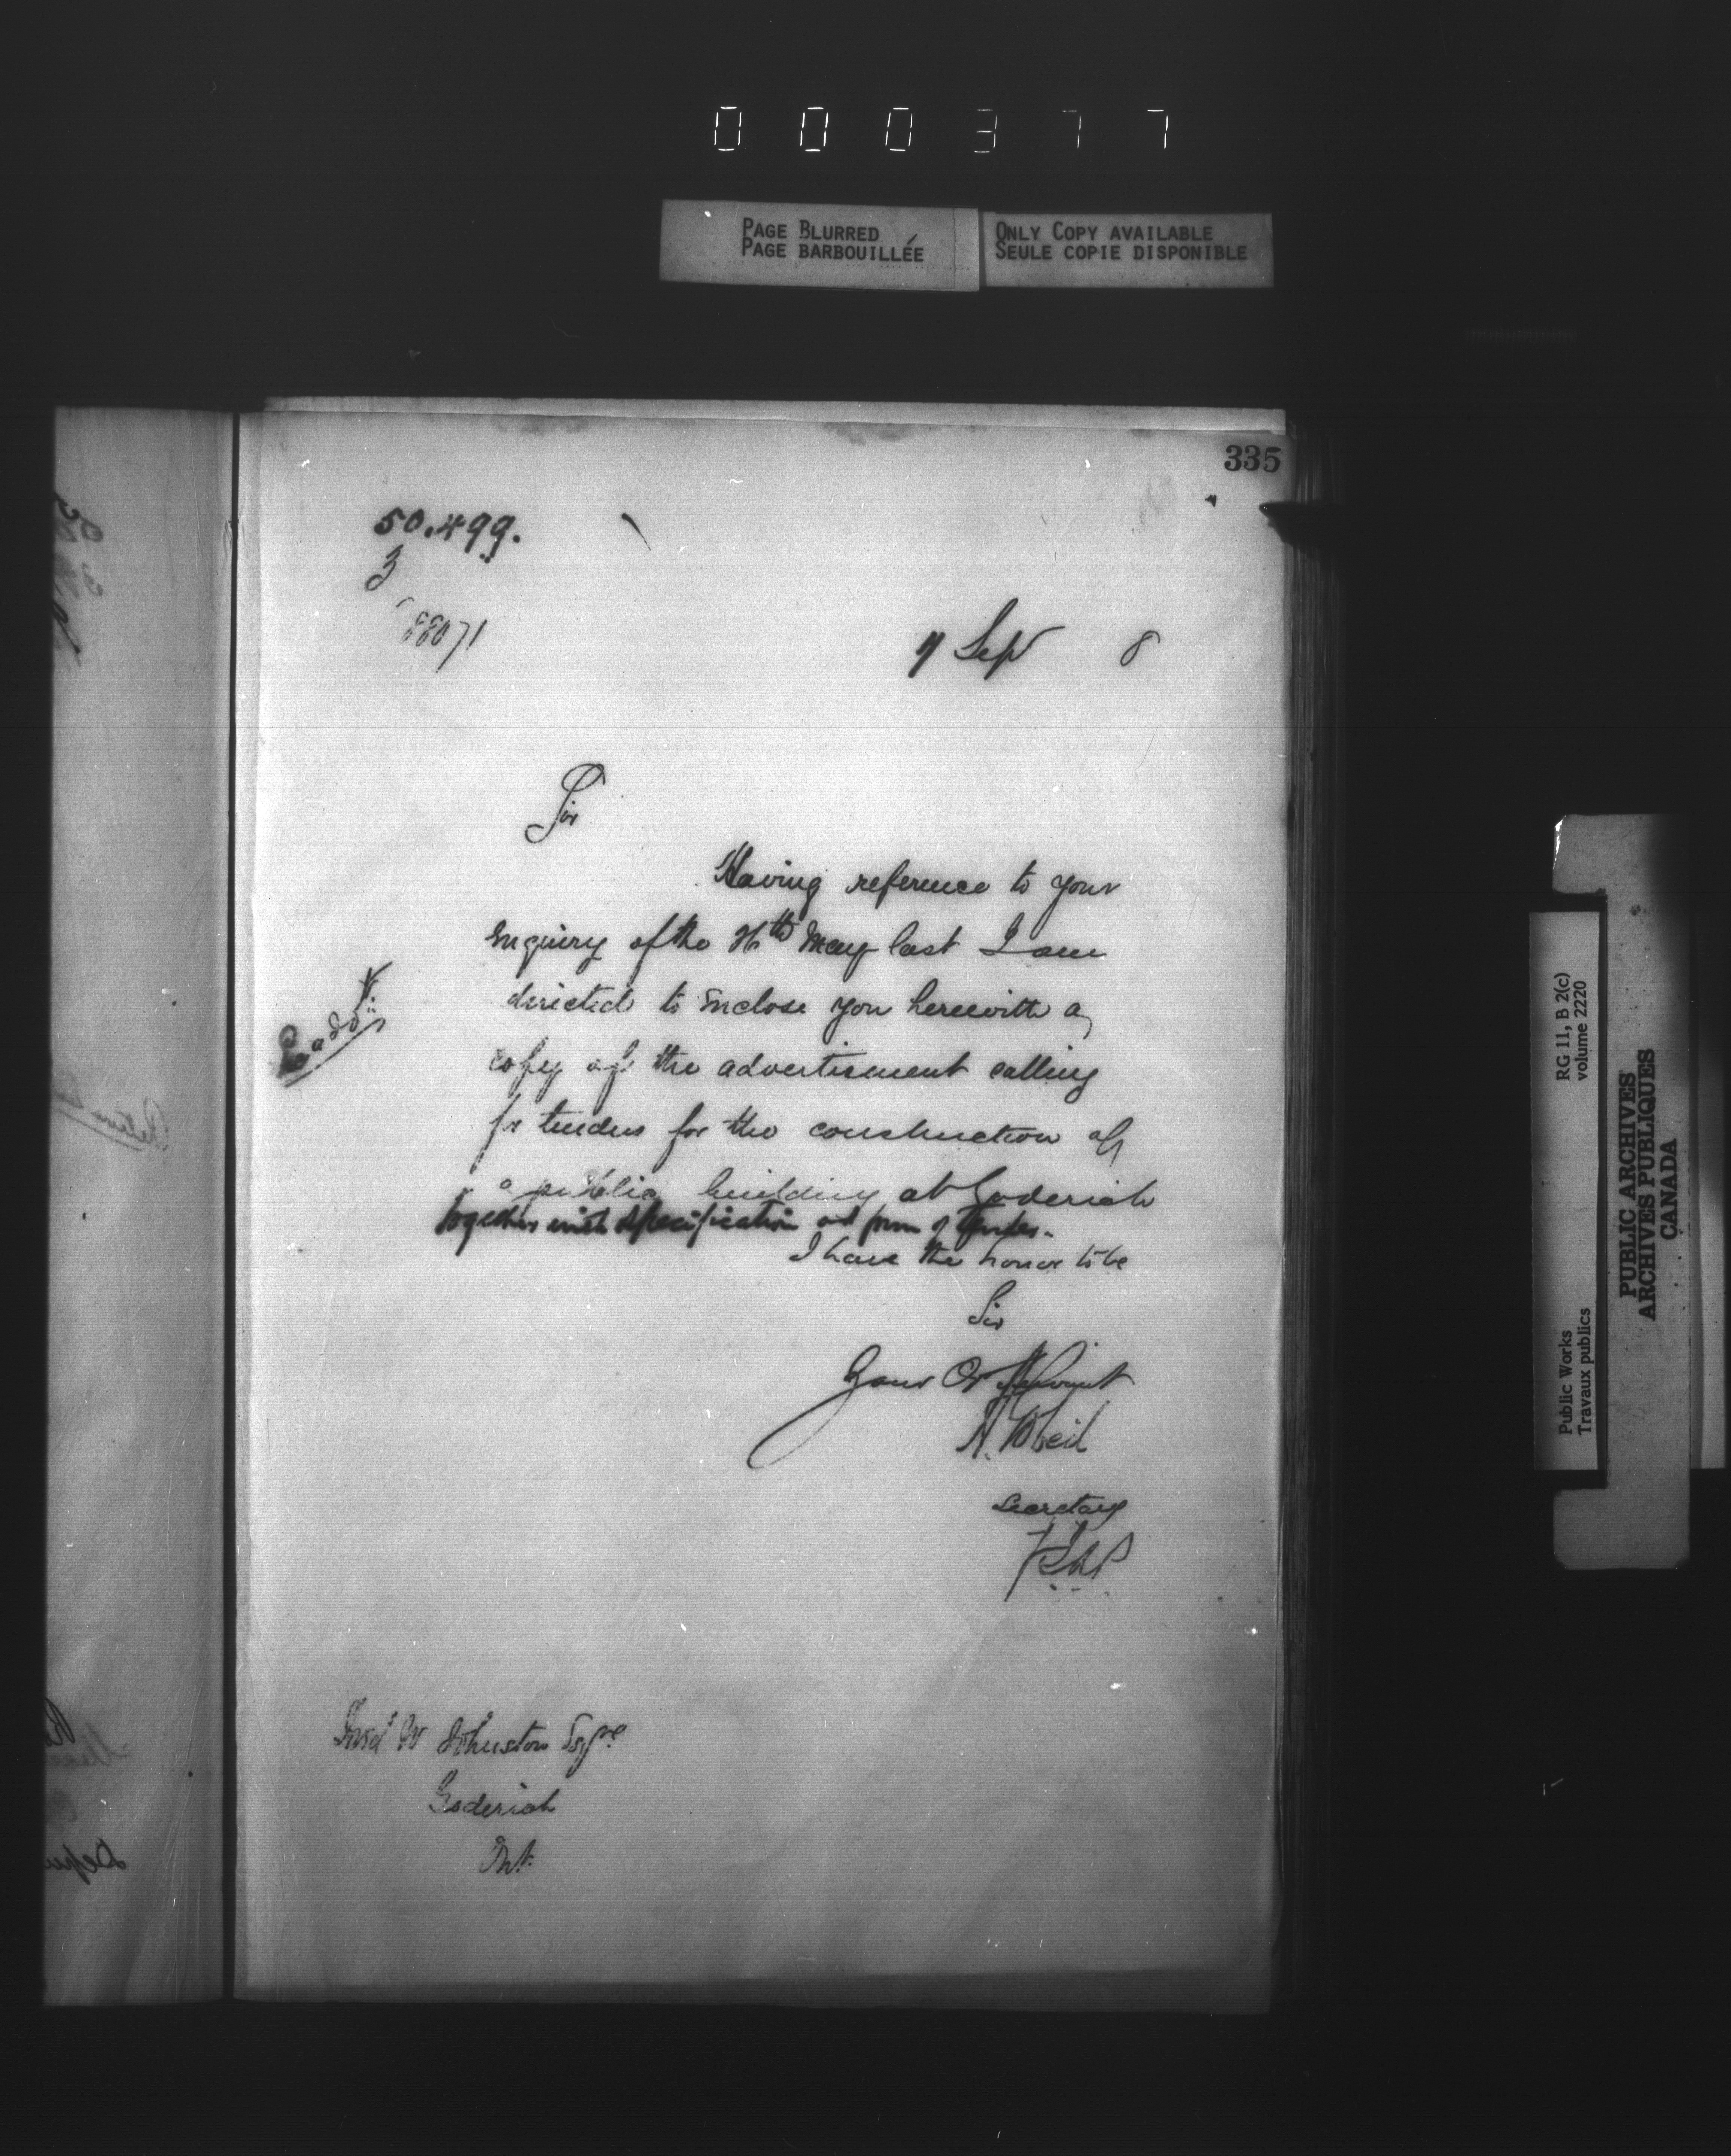 000377
PAGE BLURRED
PAGE BARBOUILLÉE
ONLY COPY AVAILABLE
SEULE COPIE DISPONIBLE
335
50.499.
3
88071
9 Sep 8
Sir
Having reference to your
enquiry of the 26th May last I am
directed to enclose you herewith a
copy of the advertisment calling
for tenders for the construction of
a public building at Goderich
together with specification and form of tender.
I have the honor to be
Sir
Your Ob Servant
Secretary
W Johnston Esqre
Goderich
Ont.
RG 11, B 2(c)
volume 2220
Public Works
Travaux publics
PUBLIC ARCHIVES
ARCHIVES PUBLIQUES
CANADA